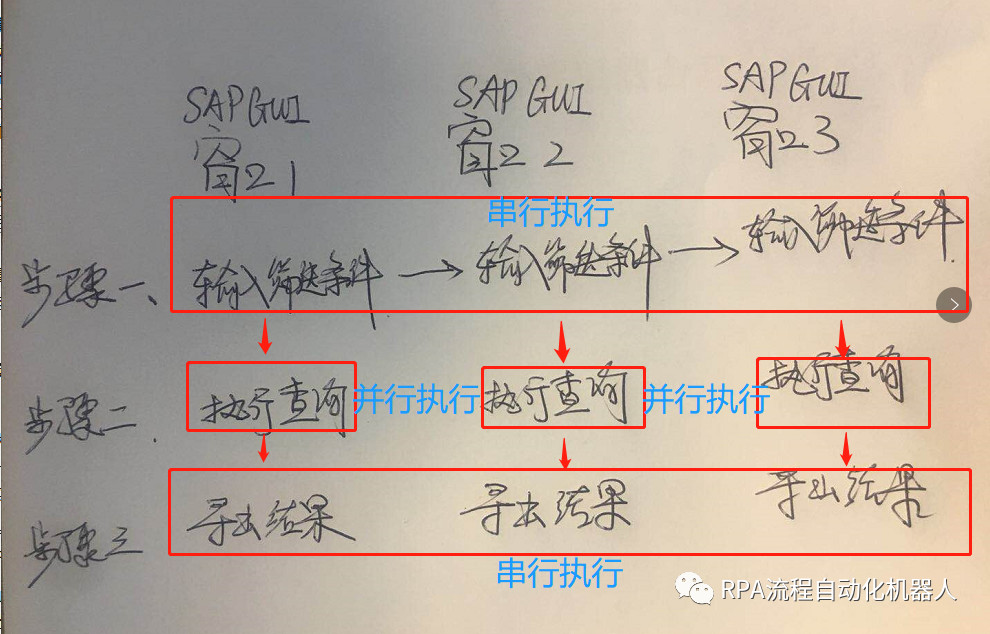 SAP GUI SAP GUI SAP GUI
窗口1 窗口2 窗口3
串行执行
步骤一、 输入筛选条件 → 输入筛选条件 → 输入筛选条件
步骤二. 执行查询 并行执行 执行查询 并行执行 执行查询
步骤三 导出结果 导出结果 导出结果
串行执行
RPA流程自动化机器人